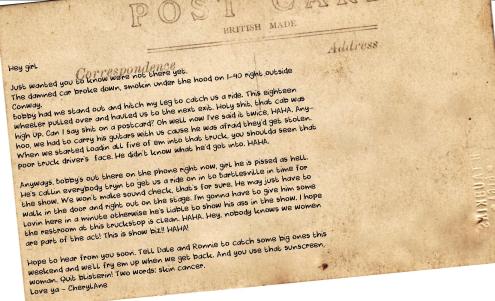 POST CARD
BRITISH MADE
Correspondence
Address
Hey girl
Just wanted you to know were not there yet.
The damned car broke down, smokin under the hood on I-40 right outside
Conway.
Tobby had me stand out and hitch my leg to catch us a ride. This eighteen
wheeler pulled over and hauled us to the next exit. Holy shit, that cab was
high up. Can I say shit on a postcard? Oh well now I've said it twice, HAHA. Any-
hoo, we had to carry his guitars with us cause he was afraid they'd get stolen.
When we started loadin all five of em into that truck, you shoulda seen that
poor truck driver's face. He didn't know what he'd got into. HAHA.
Anyways, tobby's out there on the phone right now, girl he is pissed as hell.
He's callin everybody tryin to get us a ride on in to Bartlesville in time for
the show. We won't make sound check, that's for sure. He may just have to
walk in the door and right out on the stage. I'm gonna have to give him some
lovin here in a minute otherwise he's liable to show his ass in the show. I hope
the restroom at this truckstop is clean. HAHA. Hey, nobody knows we women
are part of the act! This is show biz!! HAHA!
Hope to hear from you soon. Tell Dale and Ronnie to catch some big ones this
weekend and we'll fry em up when we get back. And you use that sunscreen,
woman. Quit blisterin! Two words: skin cancer.
Love ya - CherylAne